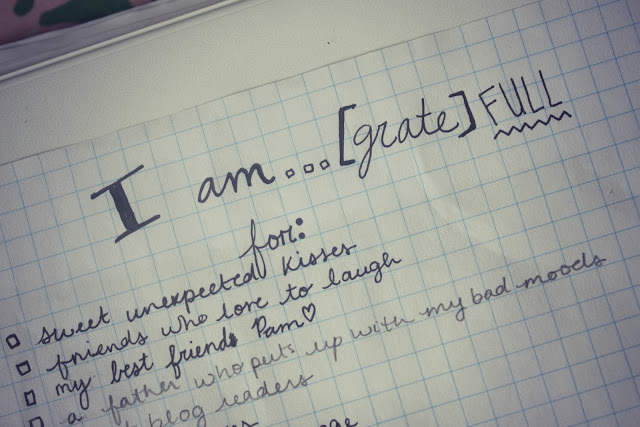 I am...[grate] FULL
for:
sweet unexpected kisses
friends who love to laugh
my best friend Pam♡
a father who puts up with my bad moods
blog readers